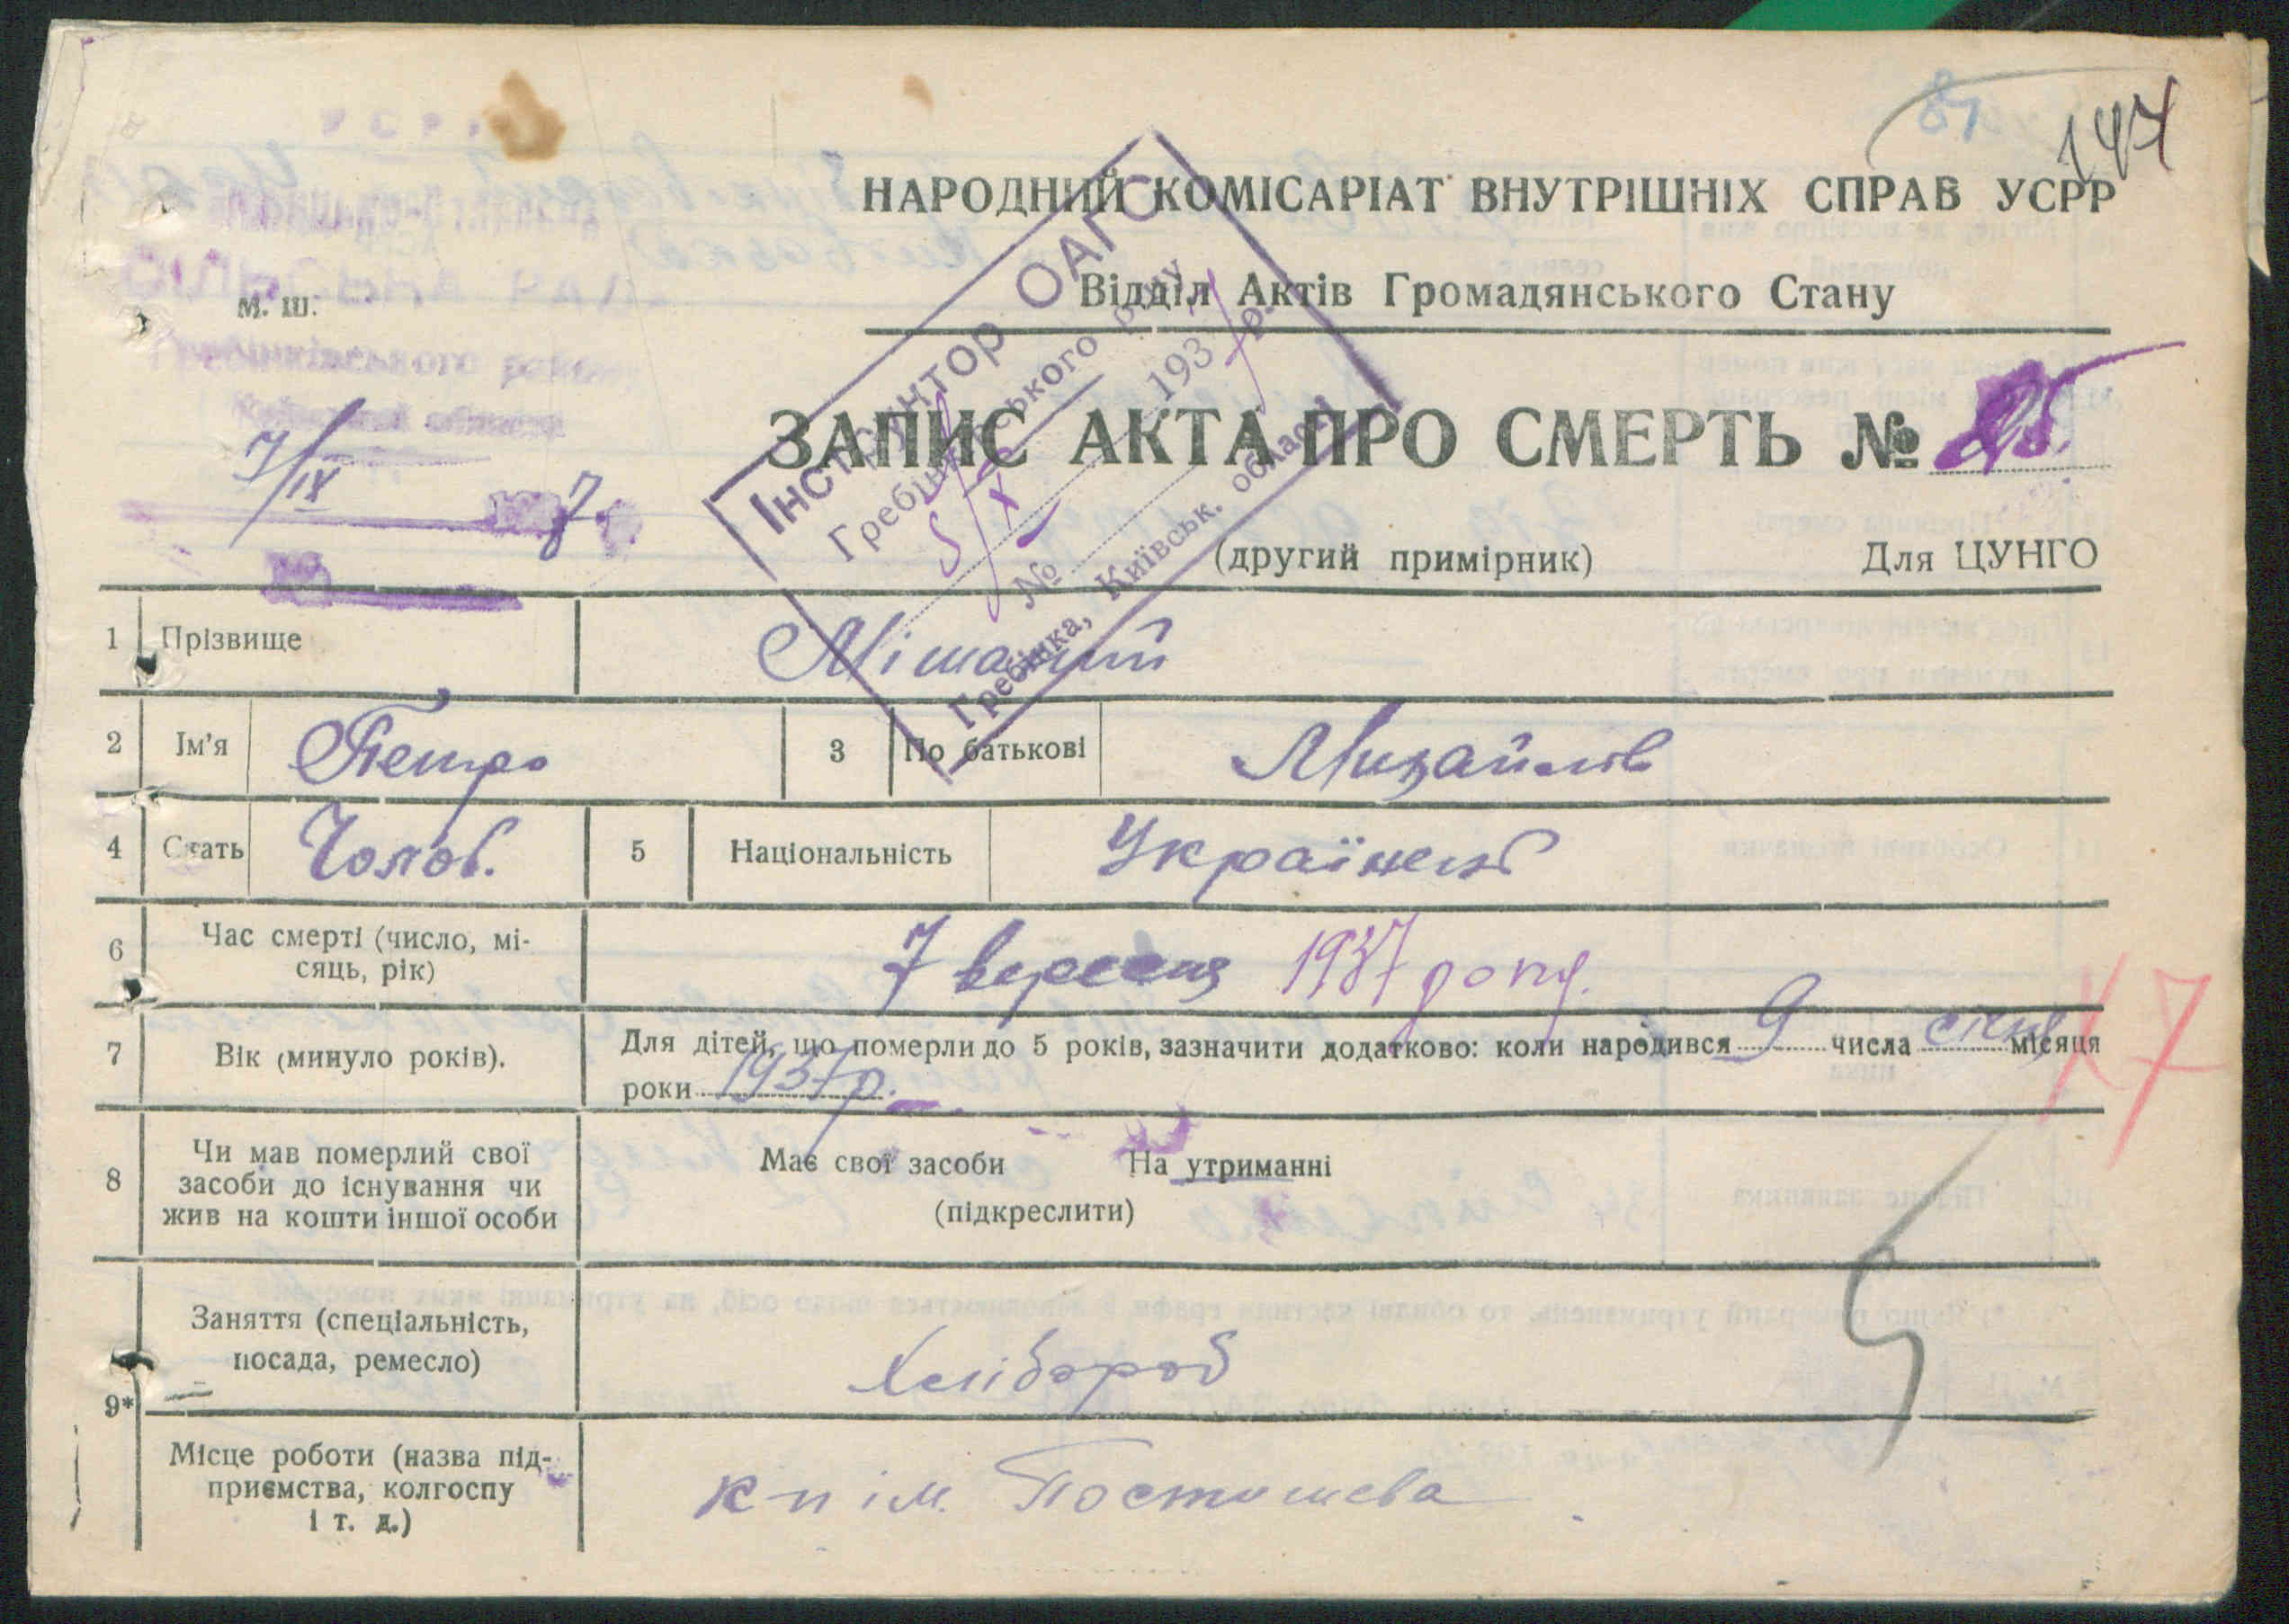 147
НАРОДНИЙ КОМІСАРІАТ ВНУТРІШНІХ СПРАВ УСРР
Відділ Актів Громадянського Стану
М. Ш.
Інструктор ОАГС
Гребінківського р-ну
5/X 1937 р.
№
Гребінка, Київськ. області
ЗАПИС АКТА ПРО СМЕРТЬ № 25.
7/IX 7.
(другий примірник) Для ЦУНГО
1 Прізвище
2 Ім'я Петро 3 По батькові Михайлов
4 Стать Чолов. 5 Національність Українець
6 Час смерті (число, мі-
сяць, рік) 7 вересня 1937 року.
7 Вік (минуло років). Для дітей, що померли до 5 років, зазначити додатково: коли народився 9 числа січня місяця
роки 1937 р.
8 Чи мав померлий свої
засоби до існування чи
жив на кошти іншої особи
Має свої засоби На утриманні
(підкреслити)
9* Заняття (спеціальність,
посада, ремесло) Хлібороб
Місце роботи (назва під-
приємства, колгоспу
і т. д.) к-п ім. Постишева